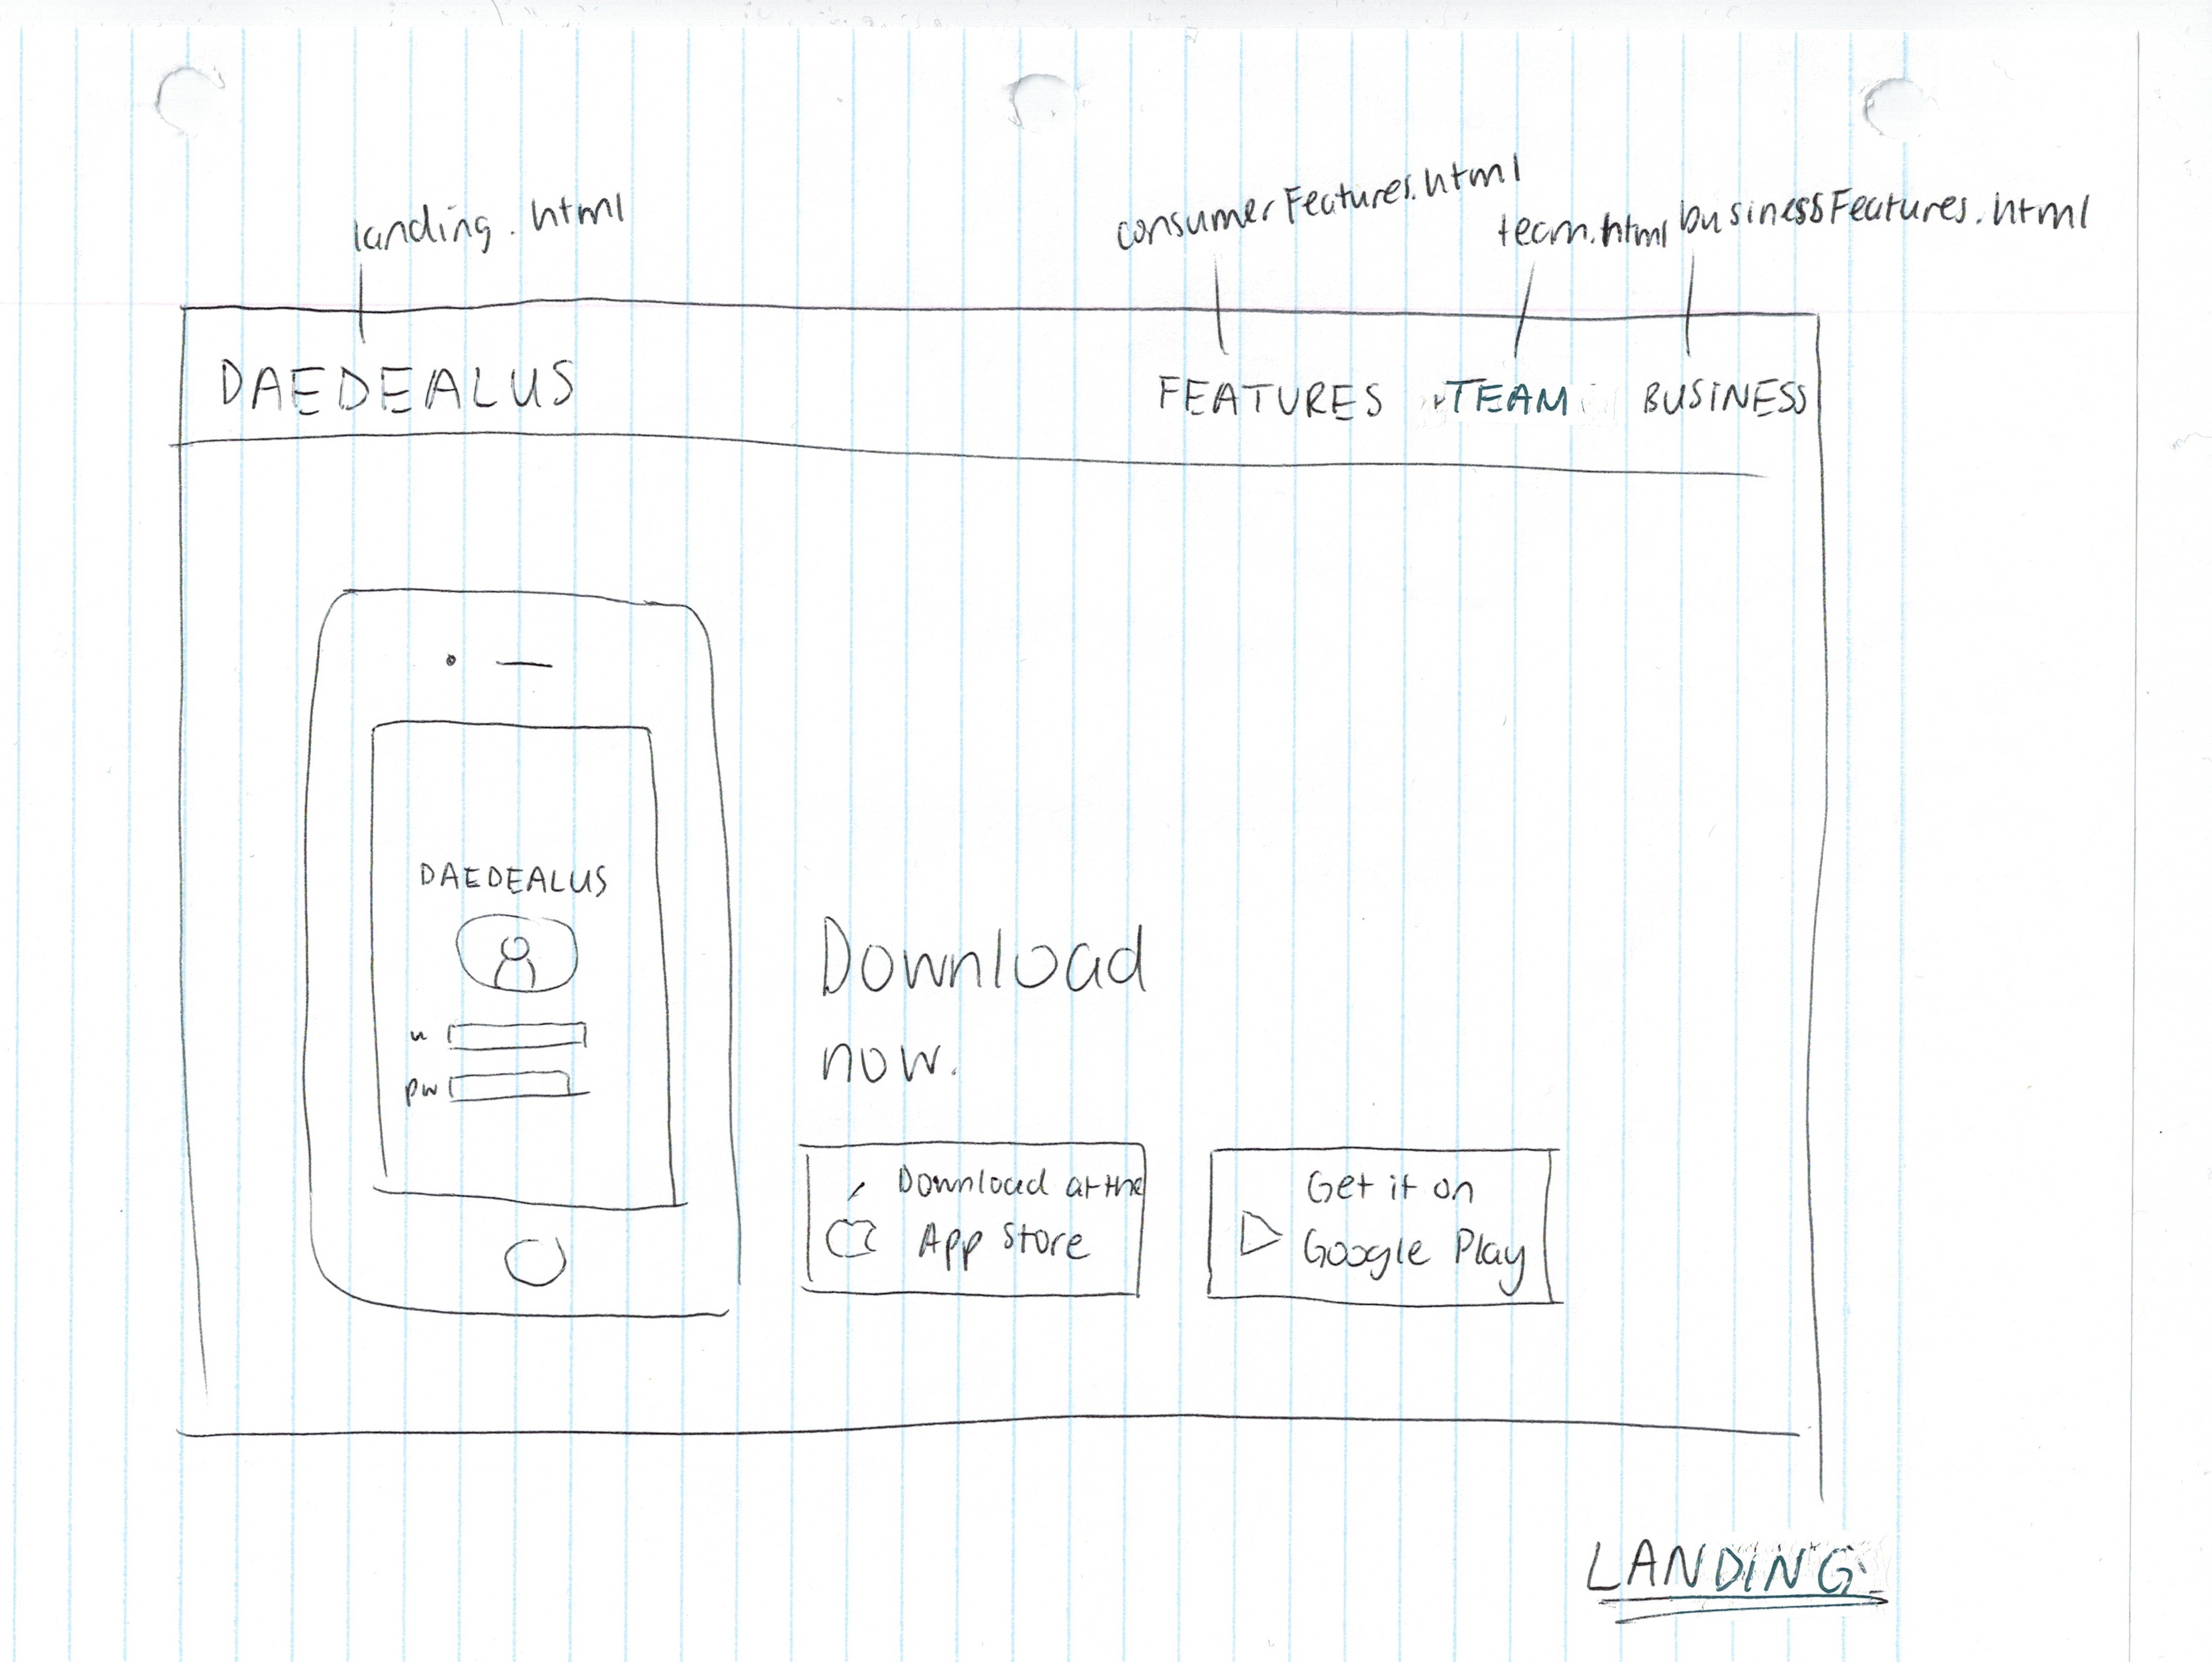 landing.html
consumerFeatures.html
team.html
businessFeatures.html
DAEDEALUS
FEATURES
TEAM
BUSINESS
DAEDEALUS
u
pw
Download
now.
Download at the
App Store
Get it on
Google Play
LANDING